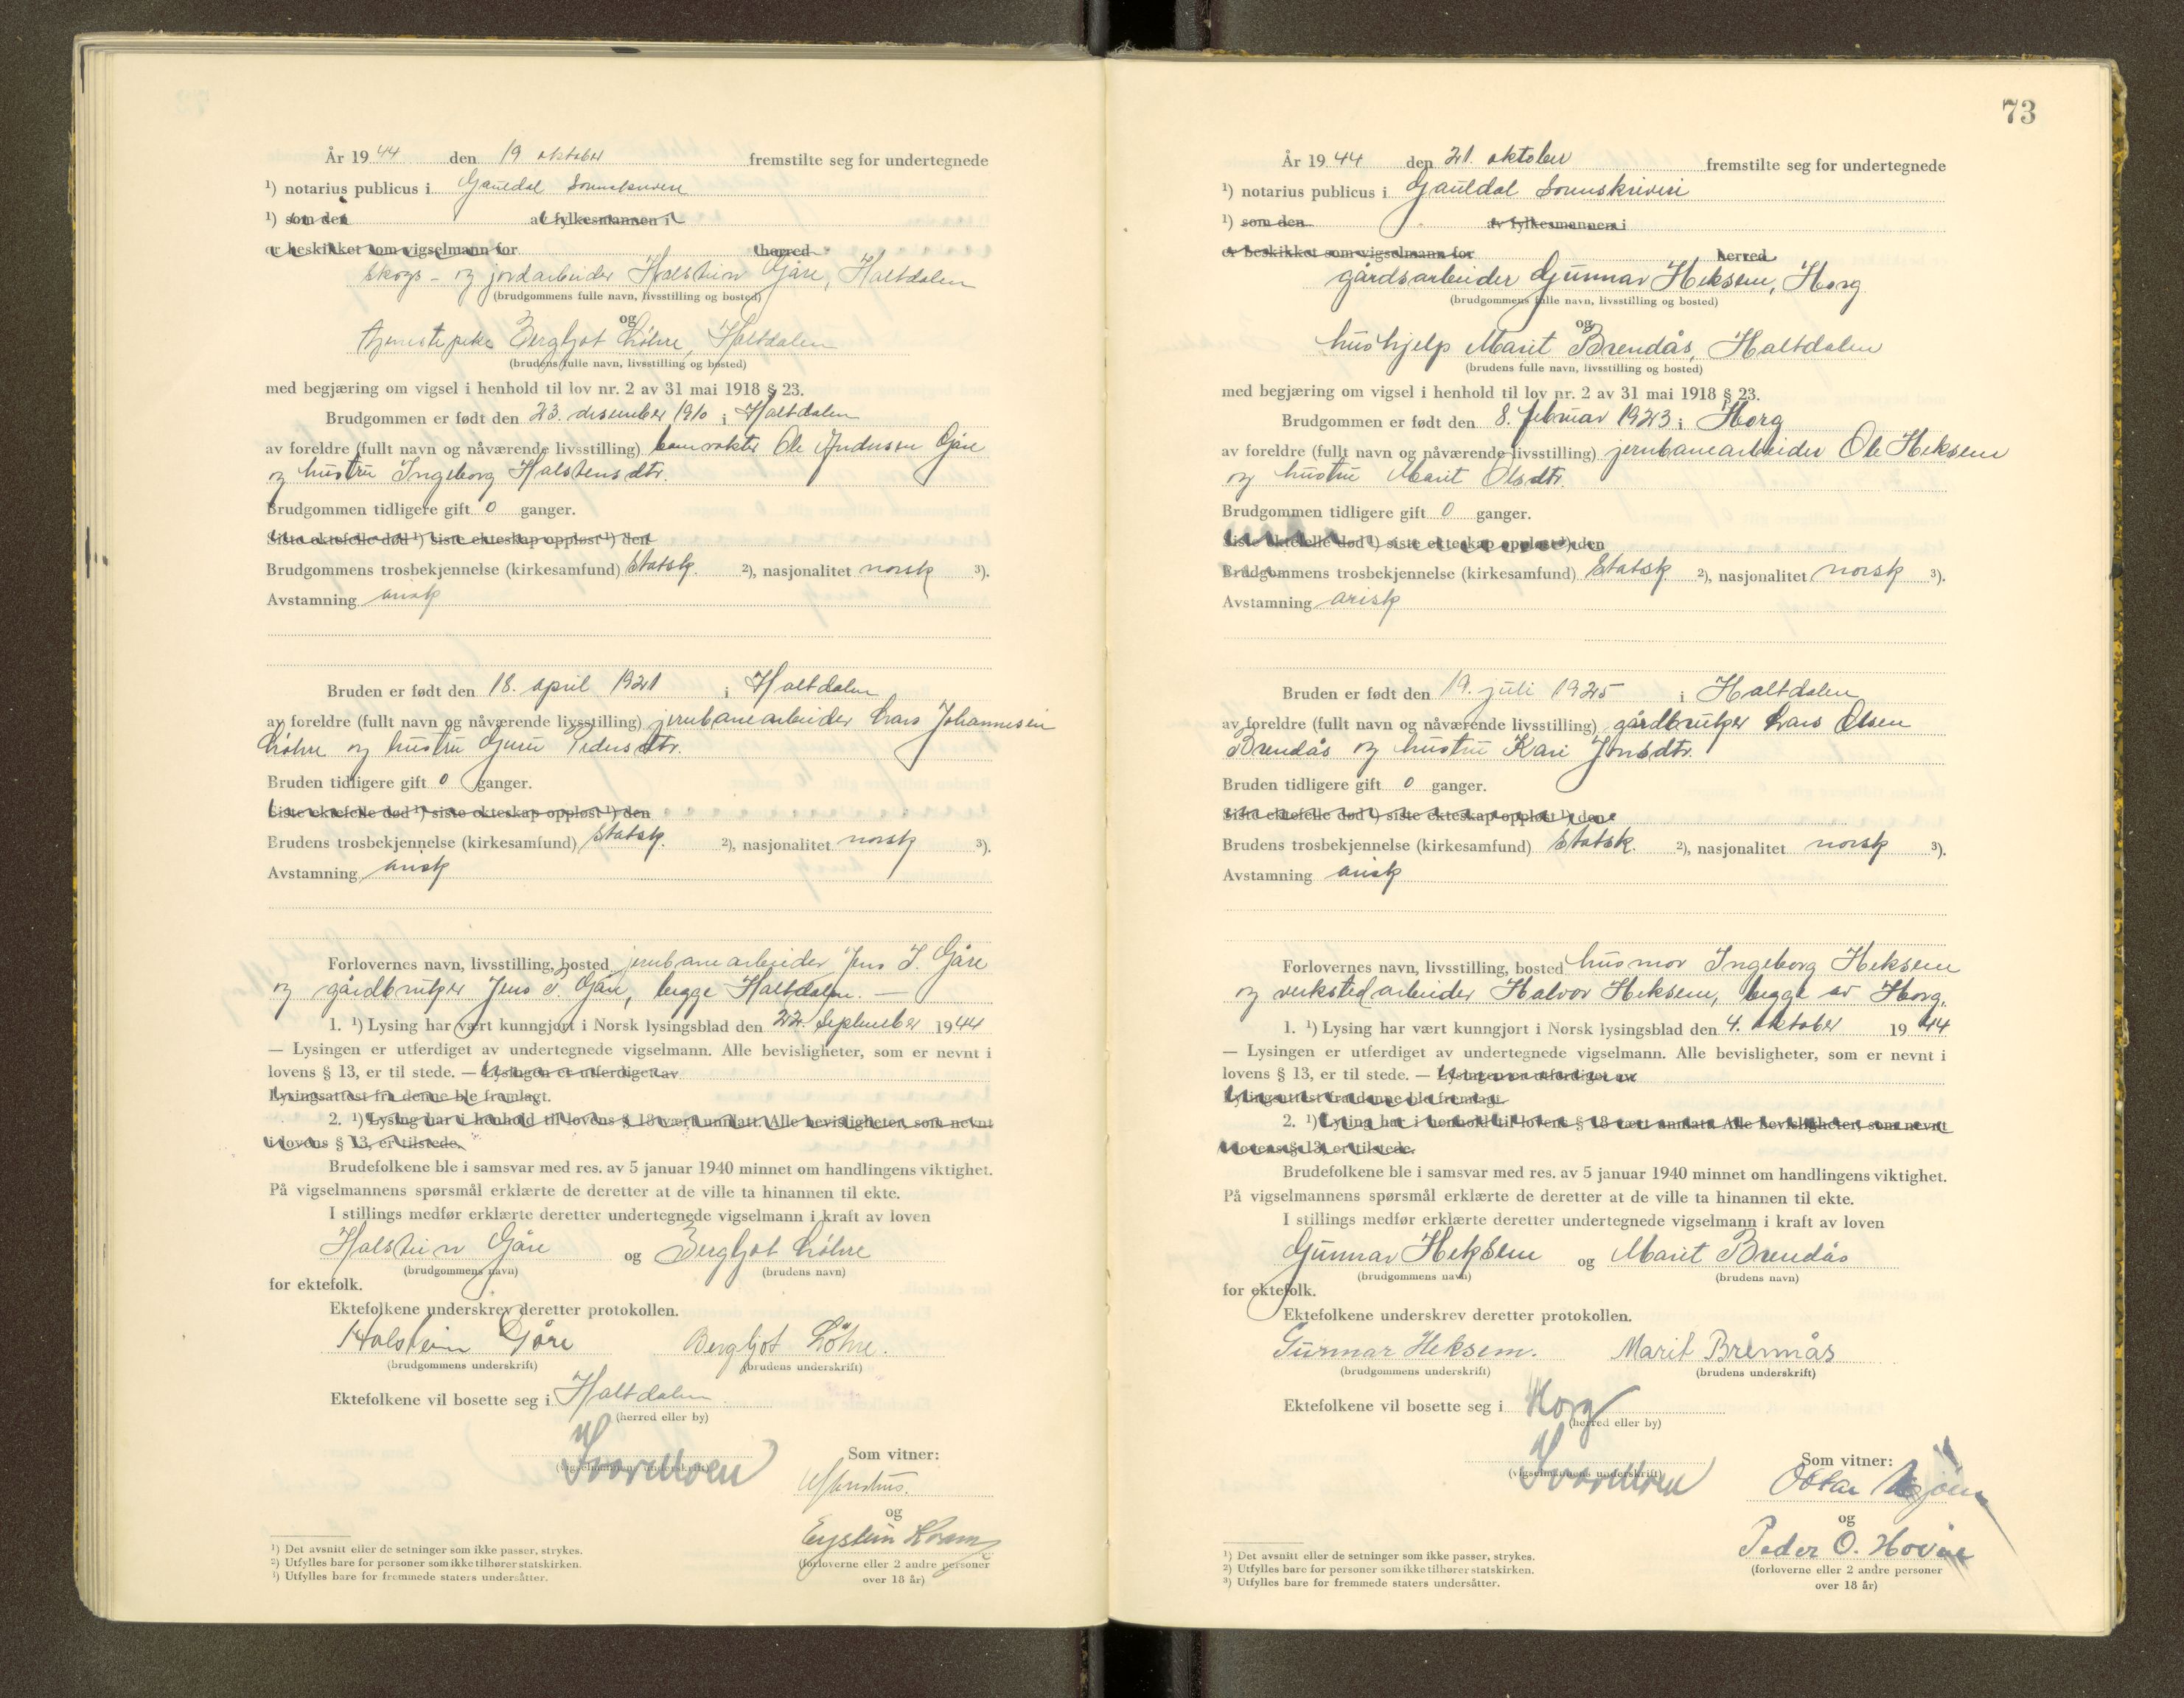 År 19 44 den 19 oktober fremstilte seg for undertegnede
¹) notarius publicus i Gauldal Sorenskriveri
¹) som den av fylkesmannen i
er beskikket som vigselmann for herred
skogs- og jordarbeider Halstein Gåre, Haltdalen
(brudgommens fulle navn, livsstilling og bosted)
og
tjenestepike Bergljot Løhre, Haltdalen
(brudens fulle navn, livsstilling og bosted)
med begjæring om vigsel i henhold til lov nr. 2 av 31 mai 1918 § 23.
Brudgommen er født den 23. desember 1910 i Haltdalen
av foreldre (fullt navn og nåværende livsstilling) banevokter Ole Andersen Gåre
og hustru Ingeborg Halstensdtr.
Brudgommen tidligere gift 0 ganger.
Siste ektefelle død ¹) siste ekteskap oppløst ¹) den
Brudgommens trosbekjennelse (kirkesamfund) Statsk. ²), nasjonalitet norsk ³).
Avstamning arisk
Bruden er født den 18. april 1921 i Haltdalen
av foreldre (fullt navn og nåværende livsstilling) jernbanearbeider Lars Johannesen
Løhre og hustru Guru Pedersdtr.
Bruden tidligere gift 0 ganger.
Siste ektefelle død ¹) siste ekteskap oppløst ¹) den
Brudens trosbekjennelse (kirkesamfund) Statsk. ²), nasjonalitet norsk ³).
Avstamning arisk
Forlovernes navn, livsstilling, bosted jernbanearbeider Jens J. Gåre
og gårdbruker Jens Gåre, begge Haltdalen. —
1. ¹) Lysing har vært kunngjort i Norsk lysingsblad den 22. september 1944
— Lysingen er utferdiget av undertegnede vigselmann. Alle bevisligheter, som er nevnt i
lovens § 13, er til stede. — Lysingen er utferdiget av
Lysingsattest fra denne ble fremlagt.
2. ¹) Lysing har i henhold til lovens § 18 vært unnlatt. Alle bevisligheter, som nevnt
i lovens § 13, er tilstede.
Brudefolkene ble i samsvar med res. av 5 januar 1940 minnet om handlingens viktighet.
På vigselmannens spørsmål erklærte de deretter at de ville ta hinannen til ekte.
I stillings medfør erklærte deretter undertegnede vigselmann i kraft av loven
Halstein Gåre og Bergljot Løhre
(brudgommens navn) (brudens navn)
for ektefolk.
Ektefolkene underskrev deretter protokollen.
Halstein Gåre Bergljot Löhre.
(brudgommens underskrift) (brudens underskrift)
Ektefolkene vil bosette seg i Haltdalen
(herred eller by)
Som vitner:
(vigselmannens underskrift)
og
Eystein
(forloverne eller 2 andre personer
over 18 år)
¹) Det avsnitt eller de setninger som ikke passer, strykes.
²) Utfylles bare for personer som ikke tilhører statskirken.
³) Utfylles bare for fremmede staters undersåtter.
73
År 19 44 den 21. oktober fremstilte seg for undertegnede
¹) notarius publicus i Gauldal Sorenskriveri
¹) som den av fylkesmannen i
er beskikket som vigselmann for herred
gårdsarbeider Gunnar Heksem, Horg
(brudgommens fulle navn, livsstilling og bosted)
og
hushjelp Marit Brendås, Haltdalen
(brudens fulle navn, livsstilling og bosted)
med begjæring om vigsel i henhold til lov nr. 2 av 31 mai 1918 § 23.
Brudgommen er født den 8. februar 1923 i Horg
av foreldre (fullt navn og nåværende livsstilling) jernbanearbeider Ole Heksem
og hustru Marit Olsdtr.
Brudgommen tidligere gift 0 ganger.
Siste ektefelle død ¹) siste ekteskap oppløst ¹) den
Brudgommens trosbekjennelse (kirkesamfund) Statsk. ²), nasjonalitet norsk ³).
Avstamning arisk
Bruden er født den 19. juli 1925 i Haltdalen
av foreldre (fullt navn og nåværende livsstilling) gårdbruker Lars Olsen
Brendås og hustru Kari Jonsdtr.
Bruden tidligere gift 0 ganger.
Siste ektefelle død ¹) siste ekteskap oppløst ¹) den
Brudens trosbekjennelse (kirkesamfund) Statsk. ²), nasjonalitet norsk ³).
Avstamning arisk
Forlovernes navn, livsstilling, bosted husmor Ingeborg Heksem
og verkstedarbeider Halvor Heksem, begge av Horg.
1. ¹) Lysing har vært kunngjort i Norsk lysingsblad den 4. oktober 19 44
— Lysingen er utferdiget av undertegnede vigselmann. Alle bevisligheter, som er nevnt i
lovens § 13, er til stede. — Lysingen er utferdiget av
Lysingsattest fra denne ble fremlagt.
2. ¹) Lysing har i henhold til lovens § 18 vært unnlatt. Alle bevisligheter, som nevnt
i lovens § 13, er tilstede.
Brudefolkene ble i samsvar med res. av 5 januar 1940 minnet om handlingens viktighet.
På vigselmannens spørsmål erklærte de deretter at de ville ta hinannen til ekte.
I stillings medfør erklærte deretter undertegnede vigselmann i kraft av loven
Gunnar Heksem og Marit Brendås
(brudgommens navn) (brudens navn)
for ektefolk.
Ektefolkene underskrev deretter protokollen.
Gunnar Heksem. Marit Brennås
(brudgommens underskrift) (brudens underskrift)
Ektefolkene vil bosette seg i Horg
(herred eller by)
Som vitner:
(vigselmannens underskrift)
og
Peder O.
(forloverne eller 2 andre personer
over 18 år)
¹) Det avsnitt eller de setninger som ikke passer, strykes.
²) Utfylles bare for personer som ikke tilhører statskirken.
³) Utfylles bare for fremmede staters undersåtter.